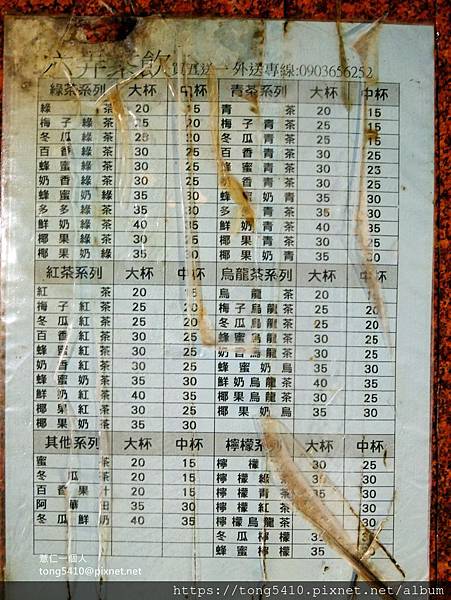 六弄茶飲 買五送一 外送專線:0903656252
綠茶系列 大杯 中杯 青茶系列 大杯 中杯
綠茶 20 15 青茶 20 15
梅子綠茶 25 20 梅子青茶 25 20
冬瓜綠茶 25 20 冬瓜青茶 25
百香綠茶 30 25 百香青茶 30 25
蜂蜜綠茶 30 25 蜂蜜青茶 30 23
奶香綠茶 30 25 奶香青茶 30 25
蜂蜜奶綠 35 30 蜂蜜奶青 35 30
多多綠茶 35 30 多多青茶 35 30
鮮奶綠茶 40 35 鮮奶青茶 40 35
椰果綠茶 30 25 椰果青茶 30 25
椰果奶綠 35 30 椰果奶青 35 30
紅茶系列 大杯 中杯 烏龍茶系列 大杯 中杯
紅茶 20 15 烏龍茶 20 15
梅子紅茶 25 20 梅子烏龍茶 25 20
冬瓜紅茶 25 20 冬瓜烏龍茶 25 20
百香紅茶 30 25 百香烏龍茶 30 25
蜂蜜紅茶 30 25 蜂蜜烏龍茶 30 25
奶香紅茶 30 25 奶香烏龍茶 30 25
蜂蜜奶茶 35 30 蜂蜜奶烏 35 30
鮮奶紅茶 40 35 鮮奶烏龍茶 40 35
椰果紅茶 30 25 椰果烏龍茶 30 25
椰果奶茶 35 30 椰果奶烏 35 30
其他系列 大杯 中杯 檸檬系列 大杯 中杯
蜜茶 20 15 檸檬 30 25
冬瓜茶 20 15 檸檬綠茶 35 30
百香果汁 20 15 檸檬青茶 35 30
阿華田 35 30 檸檬紅茶 30
冬瓜鮮奶 40 35 檸檬烏龍茶 30
冬瓜檸檬 35
蜂蜜檸檬 35
薏仁一個人
tong5410@pixnet.net
https://tong5410.pixnet.net/album